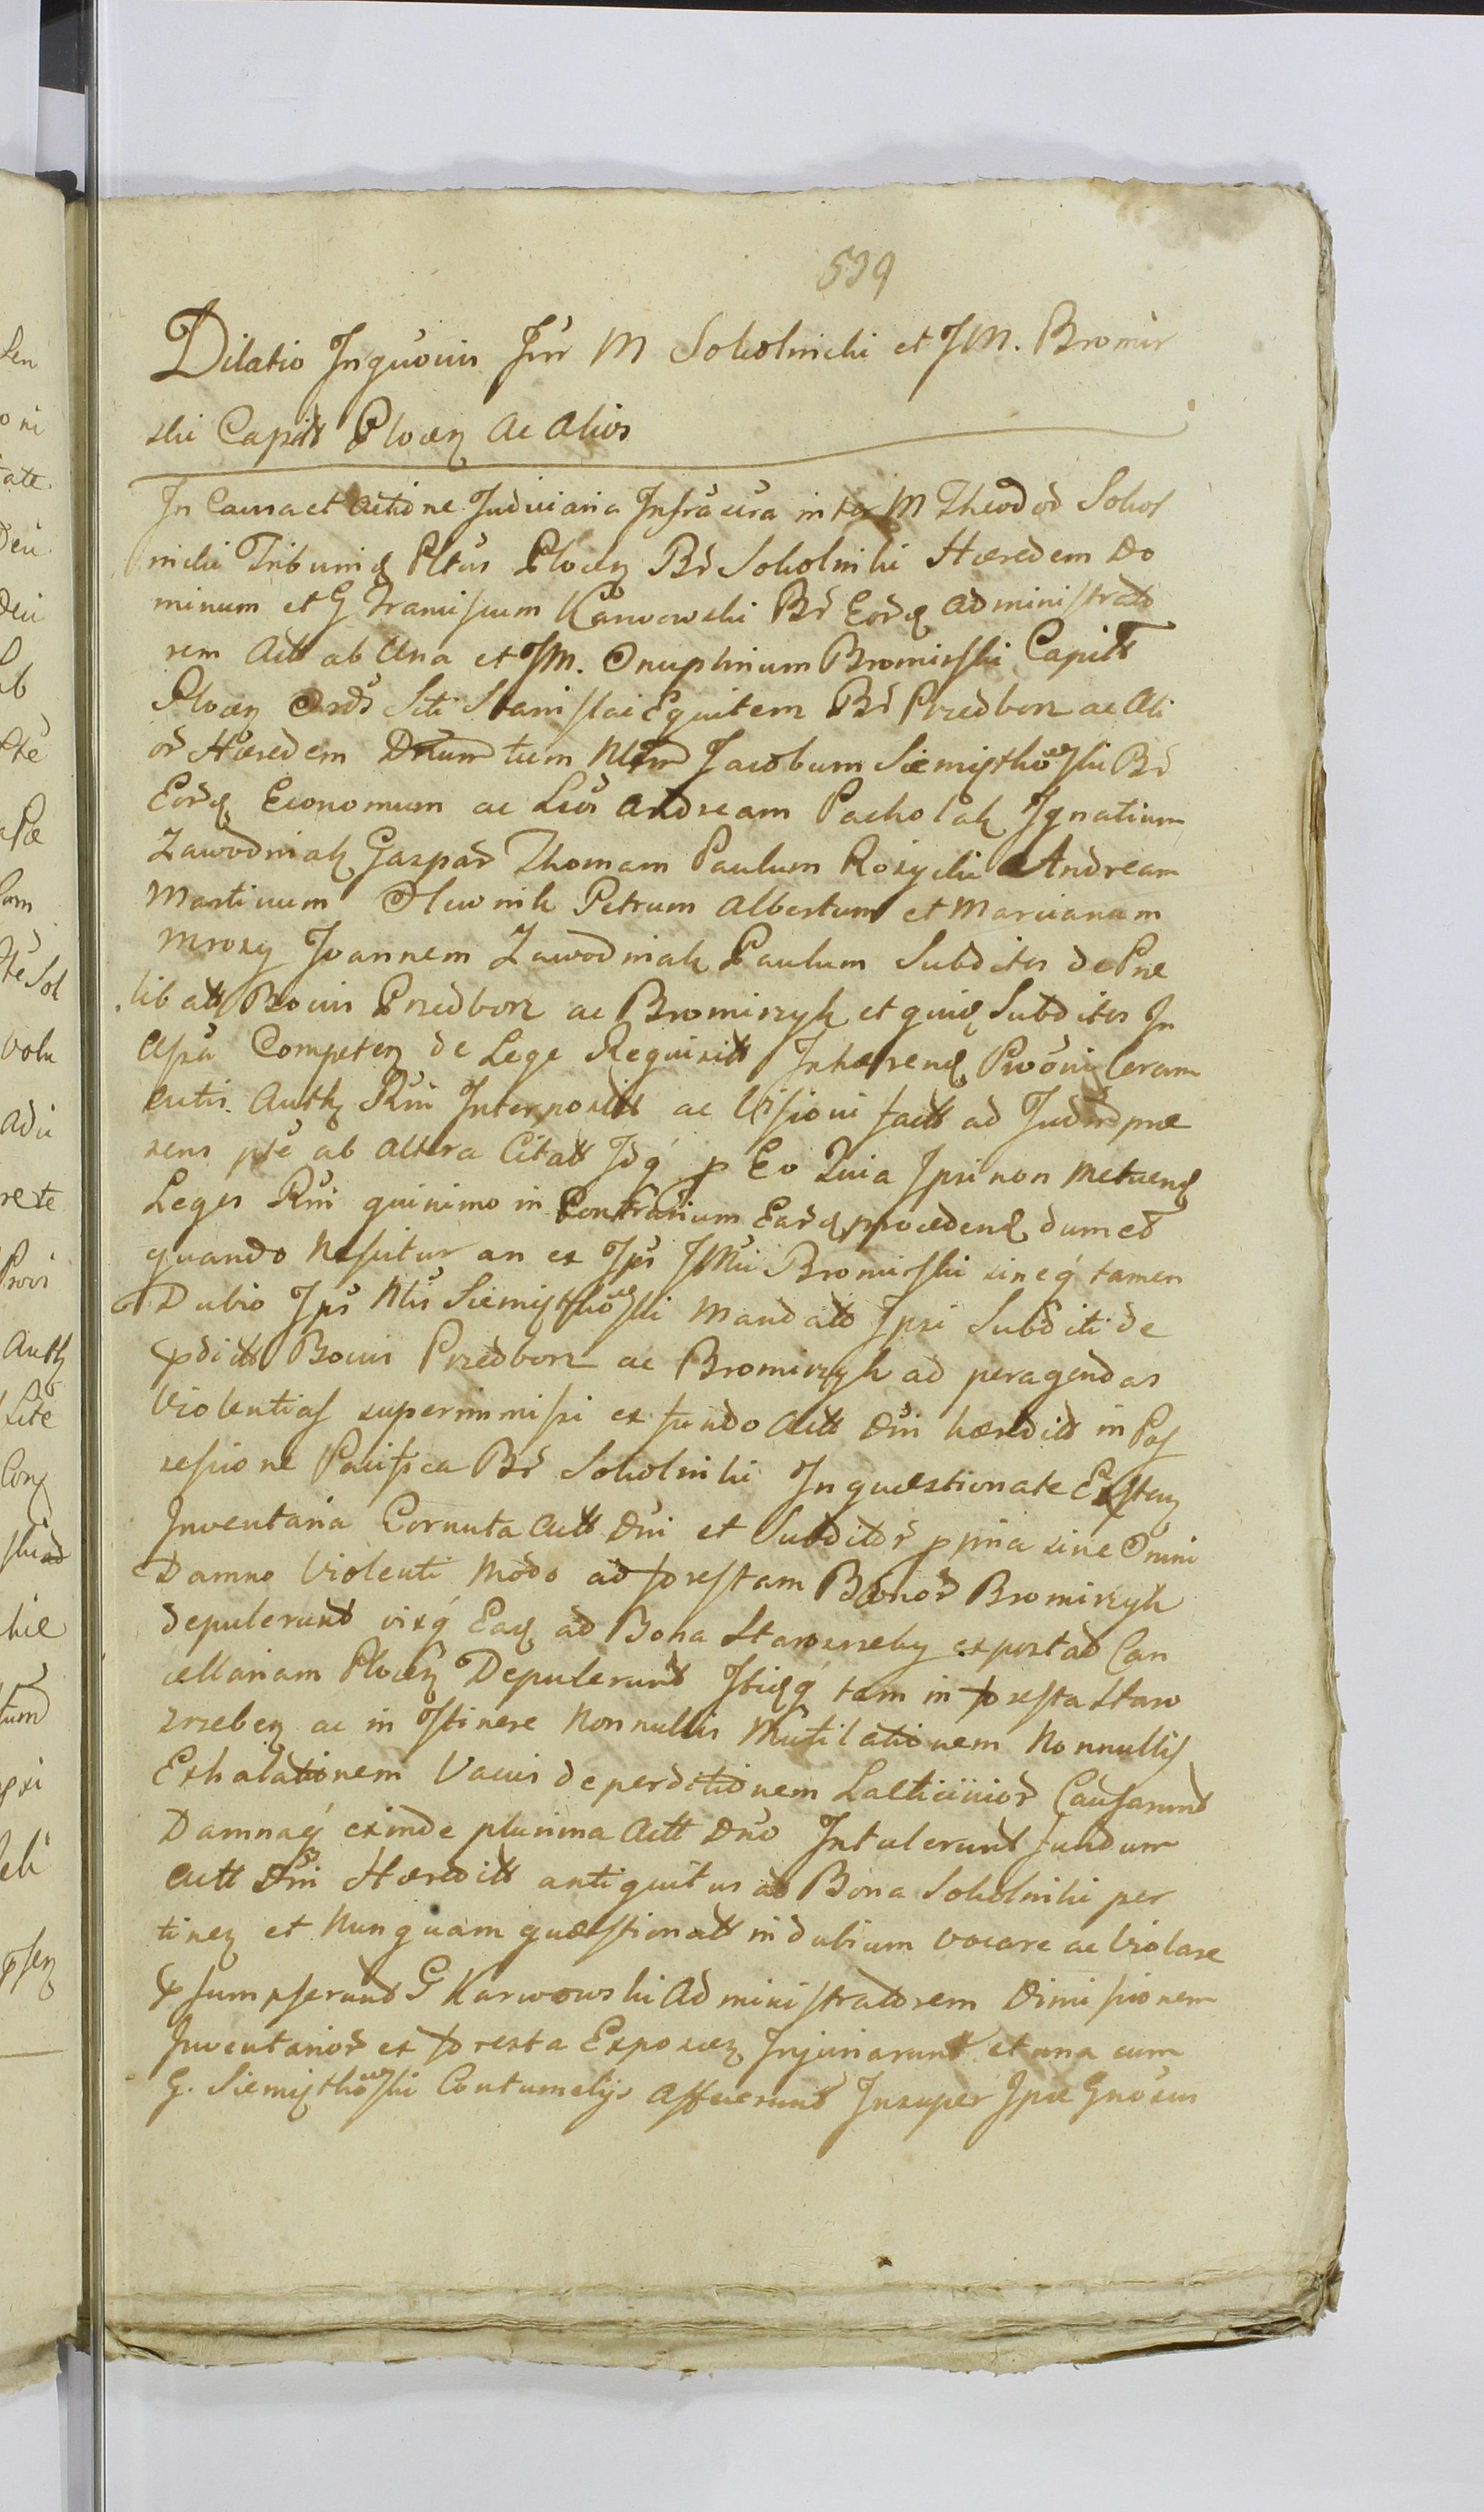 539
Dilatio Inquōnis Inr M Sokolnicki et JM. Bromir
ski Capitt Plocen ac Alios
In Causa et Actione Judiciaria Infracra inter M Theodor Sokol
nicki Tribunid Pltus Plocen Br Sokolniki Hæredem Do
minum et G Franciscum Karwowski Br Eord administrato
rem Actt ab Una et JM. Onuphrium Bromirski Capitt
Plocen Ords Sti Stanislai Equitem Br Przedborz ac Ali
or Hæredem Dnum tum Nlem Jacobum Siemiątkowski Br
Eord Economum ac Lros Andream Pacholak Ignatium
Zawodniak Gaspar Thomam Paulum Rozycki Andream
Martinum Olewnik Petrum Albertum et Marcianum
Mrozy Joannem Zawodniak Paulum Subditos de Præ
libatt Bonis Przedborz ac Bromirzyk et quid Subditos In
Assa Competen de Lege Requisitt Inhærend Prōni Ceram
entis Auth Rni Interpositt ac Vissioni factt ad Judm præ
sens pte ab altera Citatt Idq p Eo Quia Ipsi non Metuend
Leges Rni quinimo in Contrarium Eard procedend dum et
quando Nescitur an ex Ips JMci Bromirski sineq tamen
Dubio Ips Nlis Siemiątkowski Mandato Ipsi Subditi de
prdictt Bonis Przedborz ac Bromirzyk ad peragendas
Violentias superimmissi ex fundo Actt Dni hæreditt in Pos
sessione Pacifica Br Sokolniki Inquæstionate Existen
Inventaria Cornuta Actt Dni et Subditor ppria sine Omni
Damno Violenti Modo ad forestam Bonor Bromirzyk
depulerunt vixq Ead ad Bona Starozreby ex post ad Can
cellariam Plocen Depulerunt Ibidq tam in foresta Staro
zreben ac in Itinere Nonnullis Mutilationem Nonnullis
Exhalationem Vacuis deperditionem Lacticinior Causarunt
Damnaq exinde plurima Actt Dno Intulerunt fundum
Actt Dni Hæreditt antiquitus ad Bona Sokolniki per
tinen et Nunquam quæstionatt in dubium vocare ac Violare
præsumpserunt G Karwowski Administratorem Dimissionem
Inventarior ex foresta Exposcen Injuriarunt et una cum
G. Siemiątkowski Contumelijs Affecerunt Insuper Ipse Gnosus